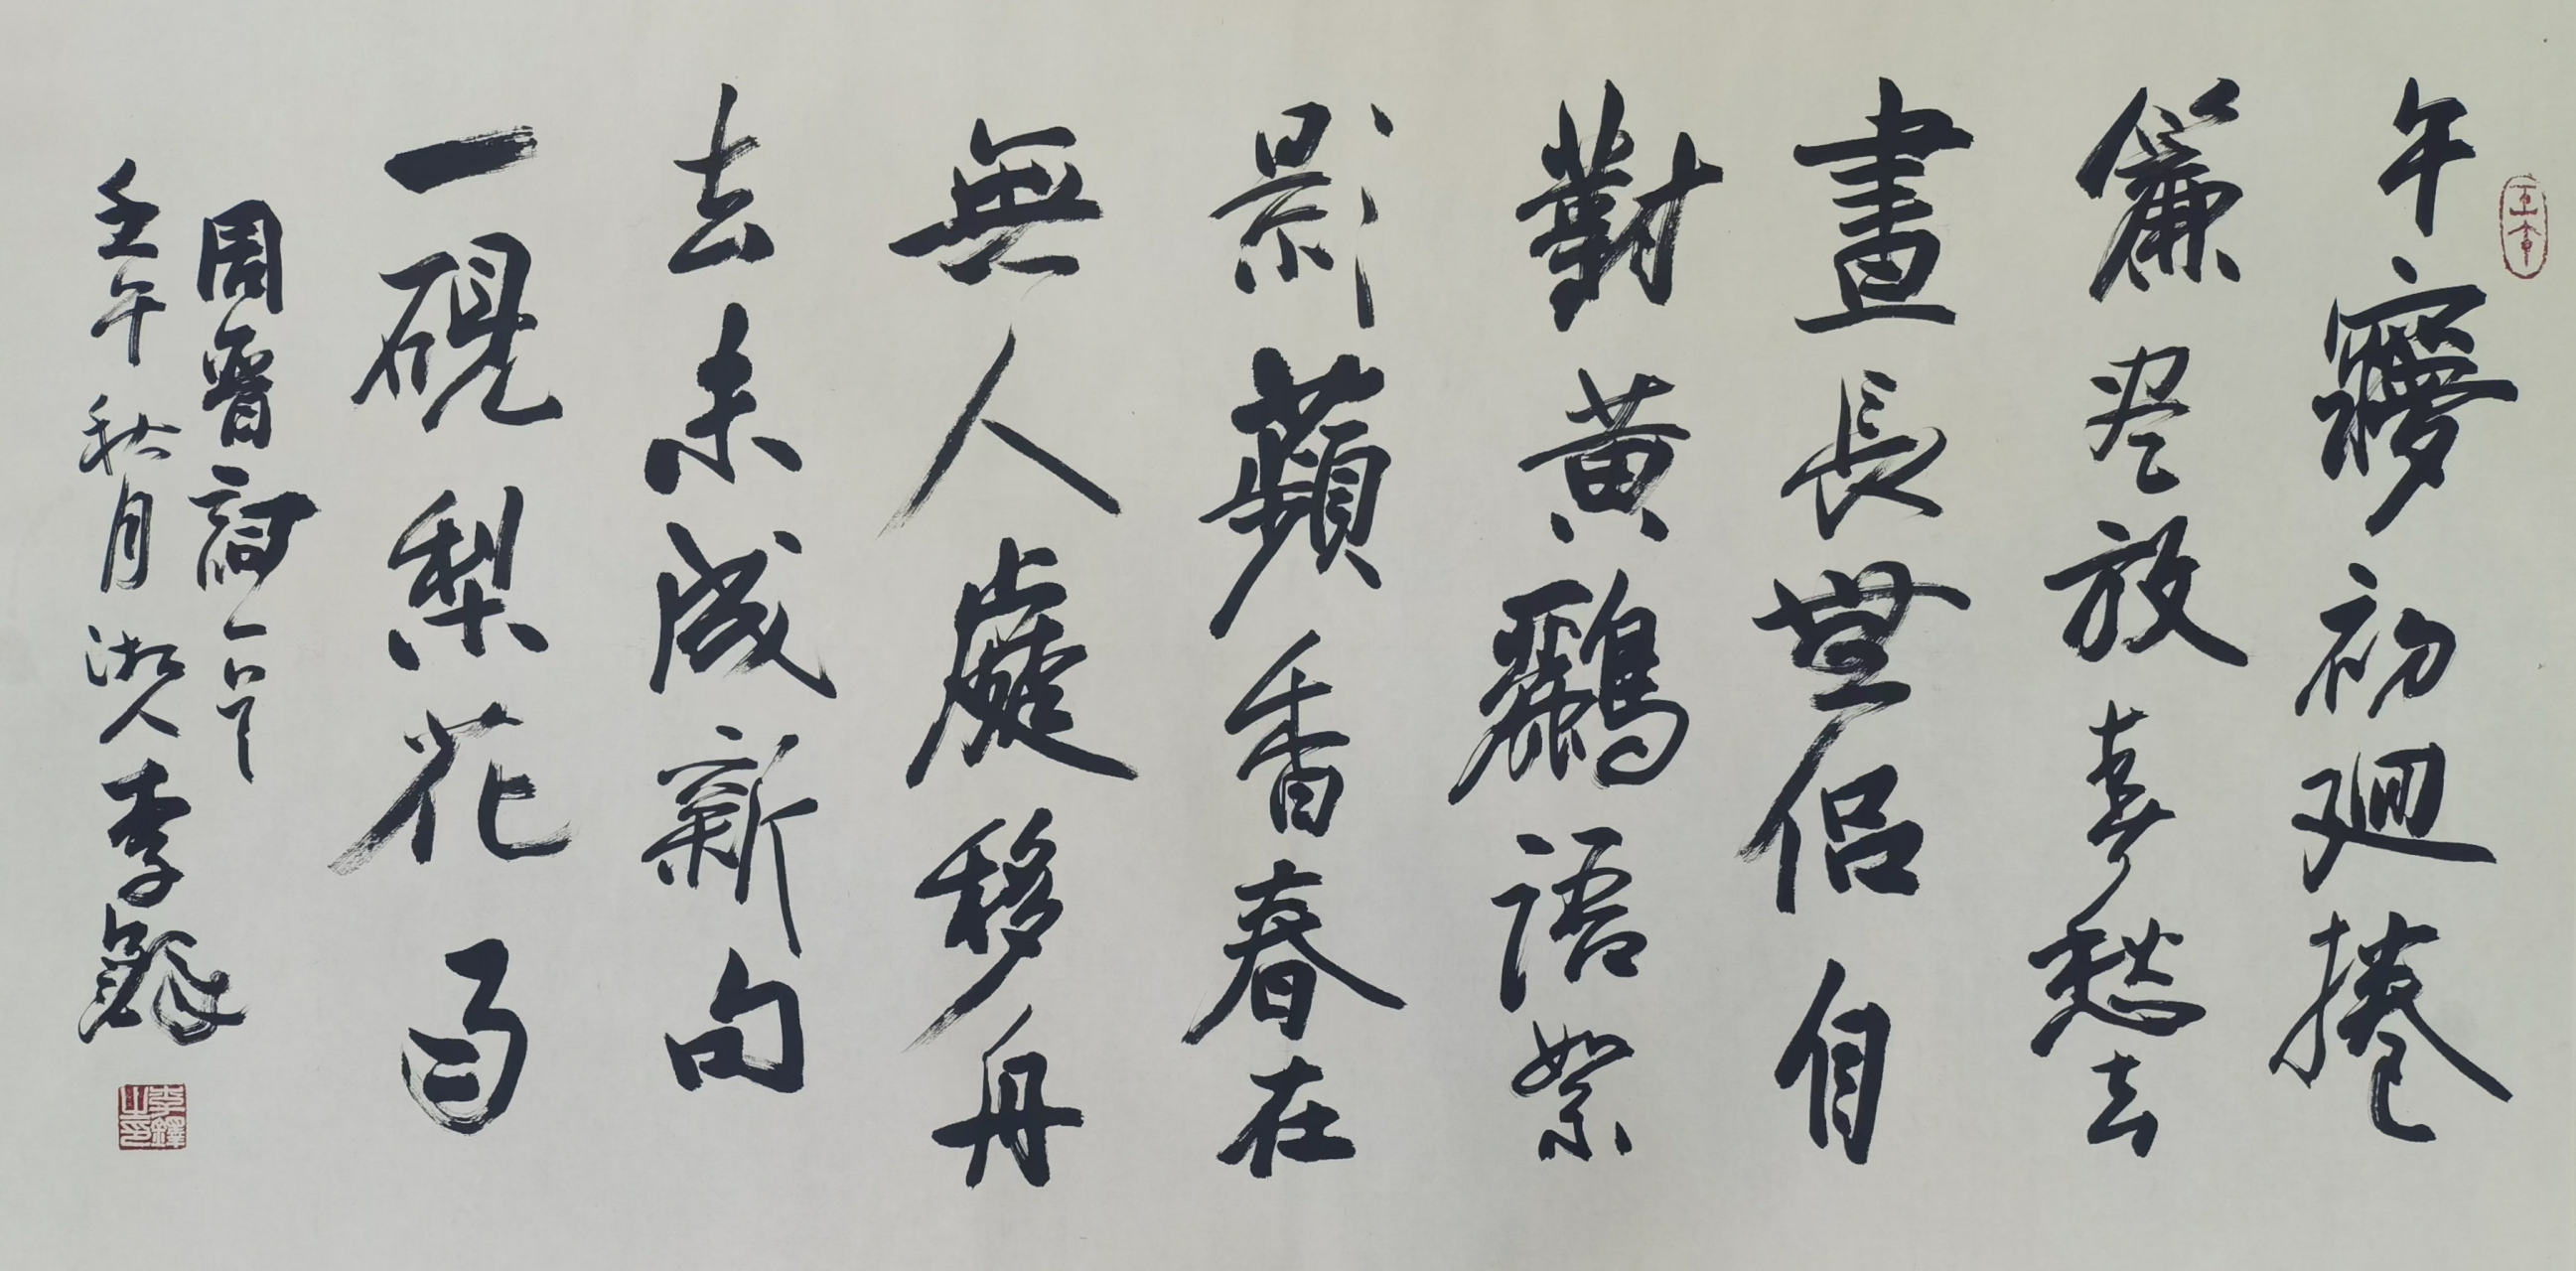 午㝱初廻捲
簾尽放春愁去
晝長無侣自
對黄鸝語絮
影蘋香春在
無人處移舟
去未成新句
一硯梨花雨
周晋詞一首
壬午秋月湘人李鐸
李鐸之印